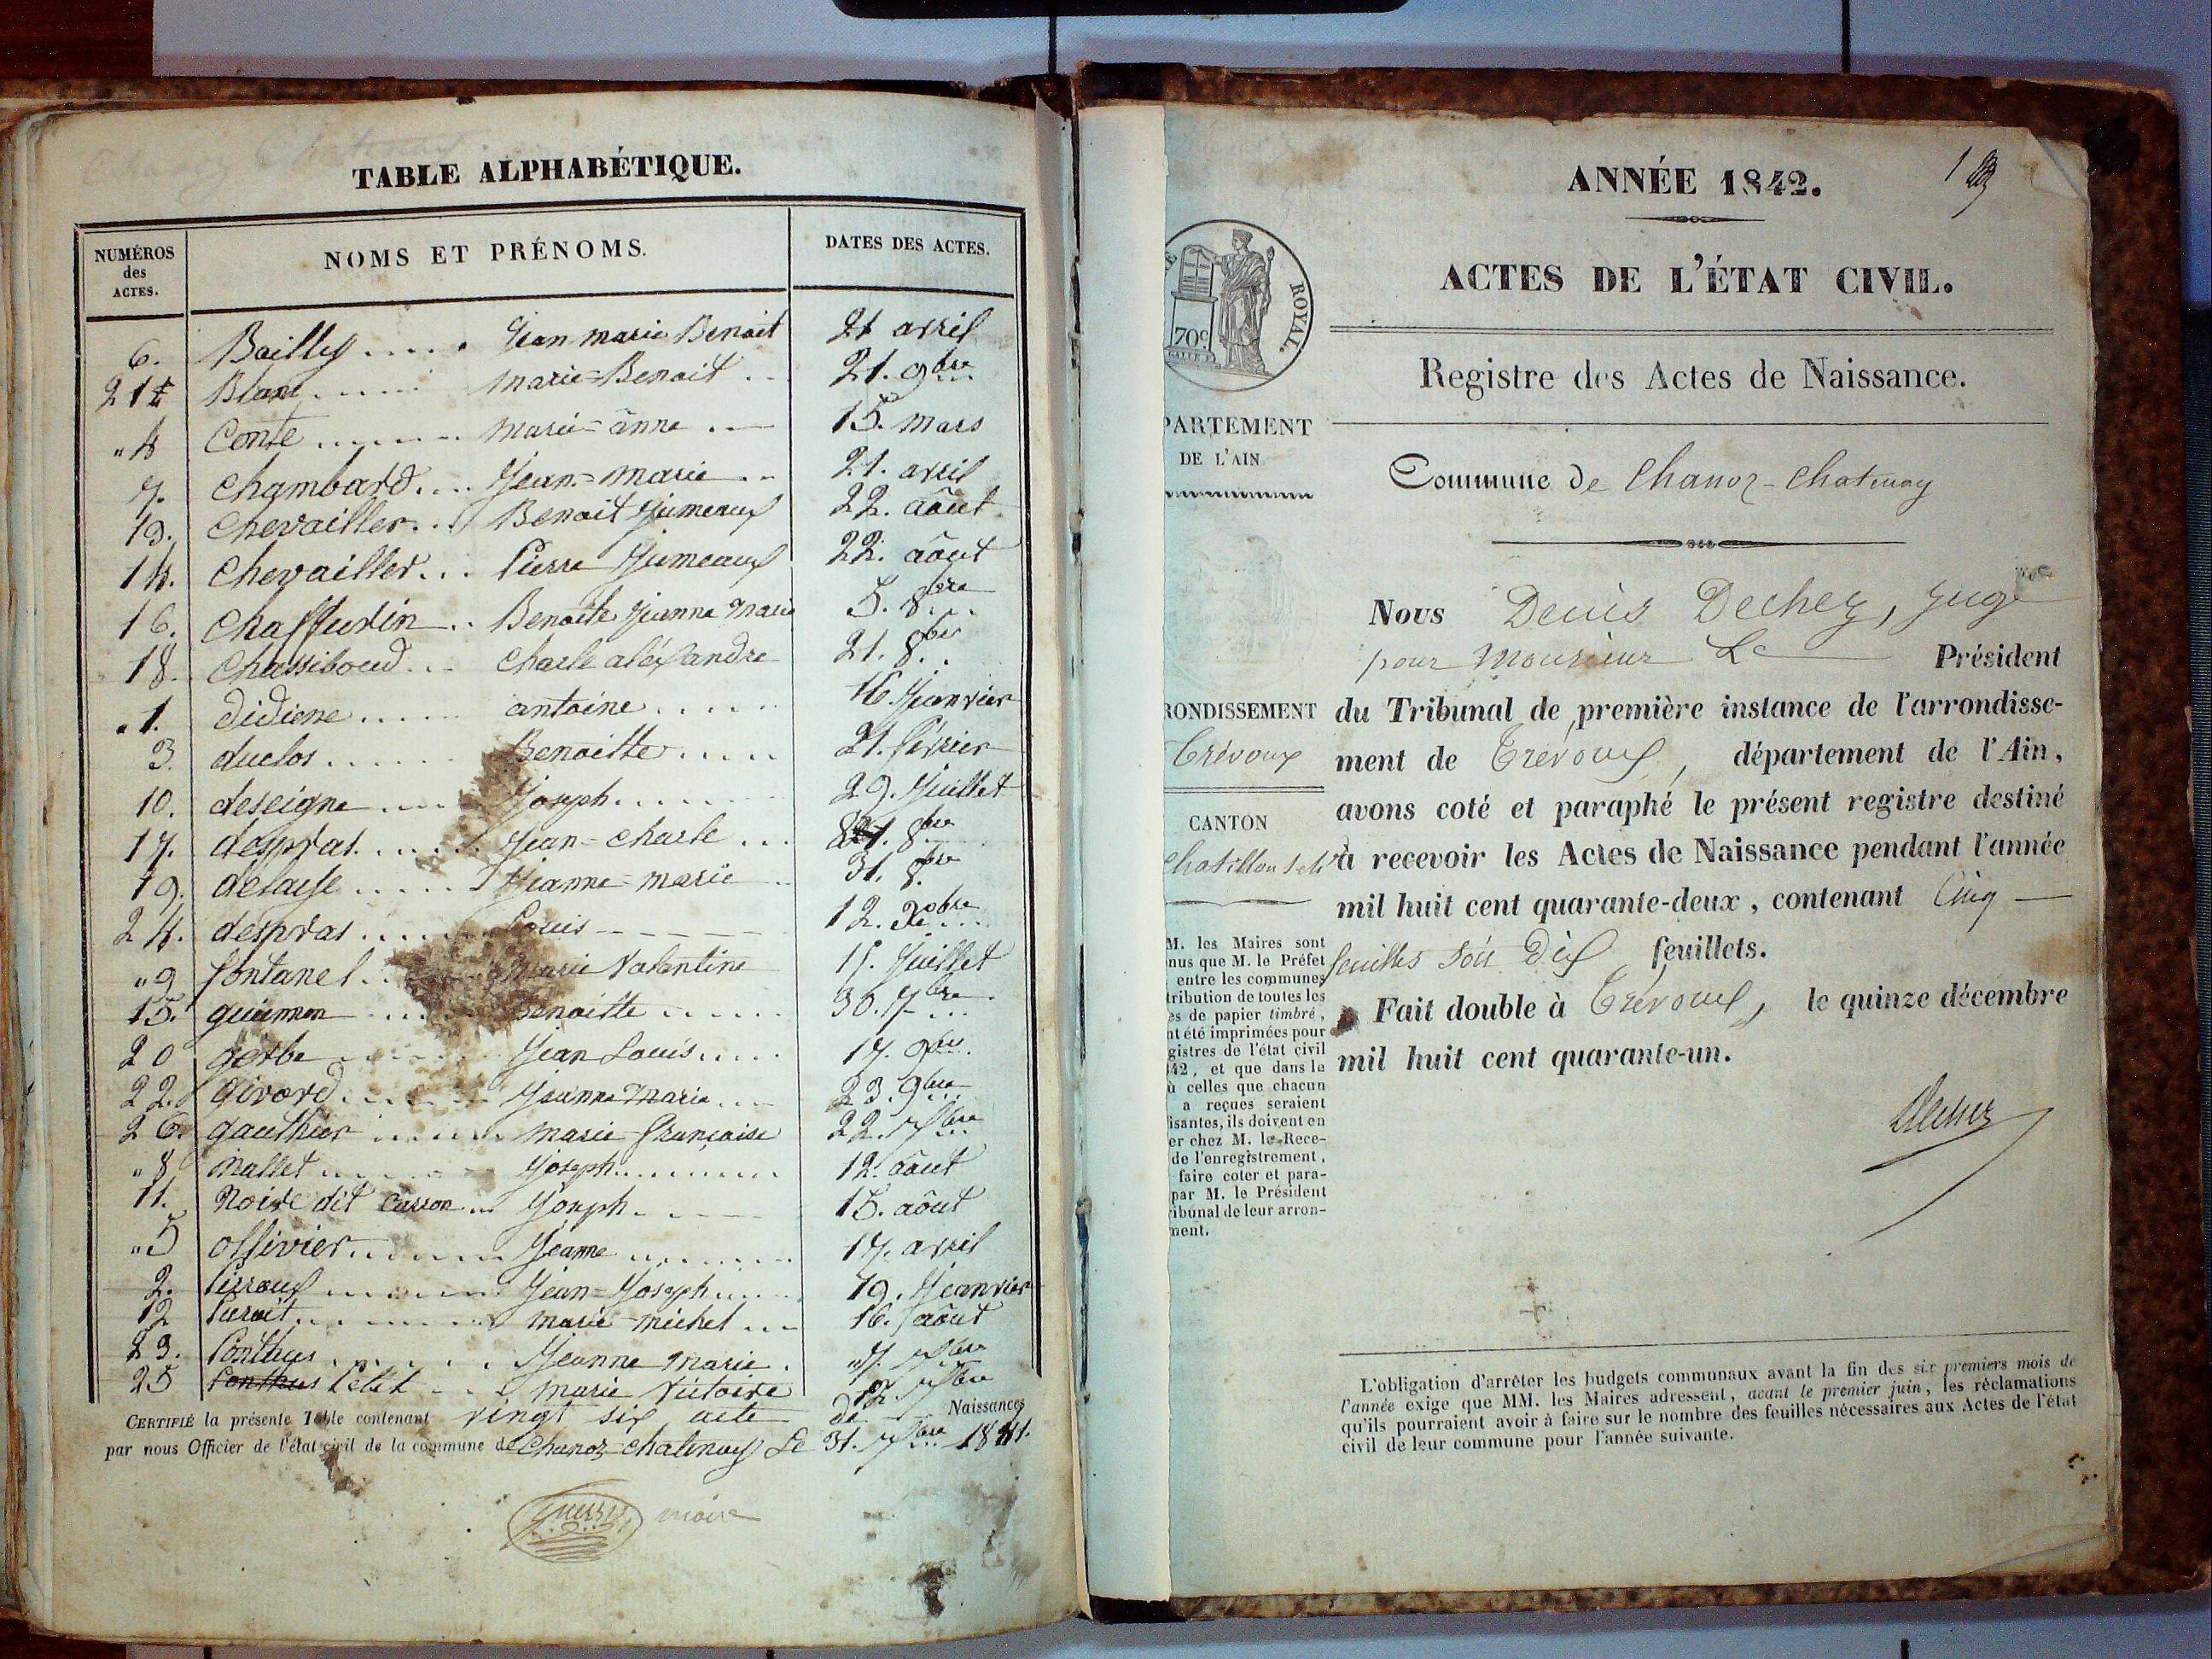 TABLE ALPHABÉTIQUE.
NUMÉROS des ACTES. NOMS ET PRÉNOMS. DATES DES ACTES.
6. Bailly ..... Jean marie Benoit 21 avril
21 Blanc ..... marie=Benoit .. 21. 9bre
"4 Conte ....... marie=anne ... 15. mars
7. Chambard.... Jean=marie .. 21. avril
13. Chevailler... Benoit Jumeaux 22. aôut
14. Chevailler... Pierre Jumeaux 22. aôut
16. Chaffurin.. Benoite Jeanne Marie 5. 8bre
18. Chassiboud... Charle aléxandre 21. 8bre
"1. didiene ..... antoine ...... 16. Jeanvier
3. duclos ...... Benoitte ..... 21. février
10. deseigne .... Joseph ...... 29. Juillet
17. despras ..... Jean=charle ... 8bre
19. delaise ..... Jeanne=marie .. 31. 8bre
24. despras ..... Louis 12. Xbre
"9 fontanel ... Marie Valentine 15. Juillet
15. guimon .... Benoitte ...... 30. 7bre
20 gerbe ...... Jean Louis..... 17. 9bre
22. girard ...... Jeanne Marie ... 23. 9bre
26. gauthier ...... marie-françoise 22. Xbre
"8 mallet ....... Joseph ........ 12. aôut
11. Noire dit Cusson ... Joseph 15. aôut
"5 ollivier ....... Jeanne ....... 17. avril
2. Perroux ....... Jean=Joseph ..... 19. Jeanvier
12 Peroit ........ marie-michel ... 16. aôut
23. Ponthus ...... Jeanne marie . "7. Xbre
25 Ponthus Petit ... marie Victoire 12. Xbre
CERTIFIÉ la présente Table contenant vingt six acte de Naissances
par nous Officier de l'état civil de la commune de Chanoz-chatenay Le 31. Xbre 1841.
maire
1
ANNÉE 1842.
ACTES DE L'ÉTAT CIVIL.
ROYAL.
70c
Registre des Actes de Naissance.
PARTEMENT
DE L'AIN
Commune de Chanoz-Chatenay
Nous Denis Dechez, Juge
pour Monsieur Le Président
RONDISSEMENT du Tribunal de première instance de l'arrondisse-
Trévoux ment de Trévoux, département de l'Ain,
avons coté et paraphé le présent registre destiné
CANTON
Chatillon à recevoir les Actes de Naissance pendant l'année
mil huit cent quarante-deux, contenant Cinq
feuilles soit Dix feuillets.
Fait double à Trévoux, le quinze décembre
mil huit cent quarante-un.
M. les Maires sont
nus que M. le Préfet
entre les communes
tribution de toutes les
es de papier timbré,
nt été imprimées pour
gistres de l'état civil
42, et que dans le
ù celles que chacun
a reçues seraient
isantes, ils doivent en
er chez M. le Rece-
de l'enregistrement,
faire coter et para-
par M. le Président
ribunal de leur arron-
ment.
Dechez
L'obligation d'arrêter les budgets communaux avant la fin des six premiers mois de
l'année exige que MM. les Maires adressent, avant le premier juin, les réclamations
qu'ils pourraient avoir à faire sur le nombre des feuilles nécessaires aux Actes de l'état
civil de leur commune pour l'année suivante.